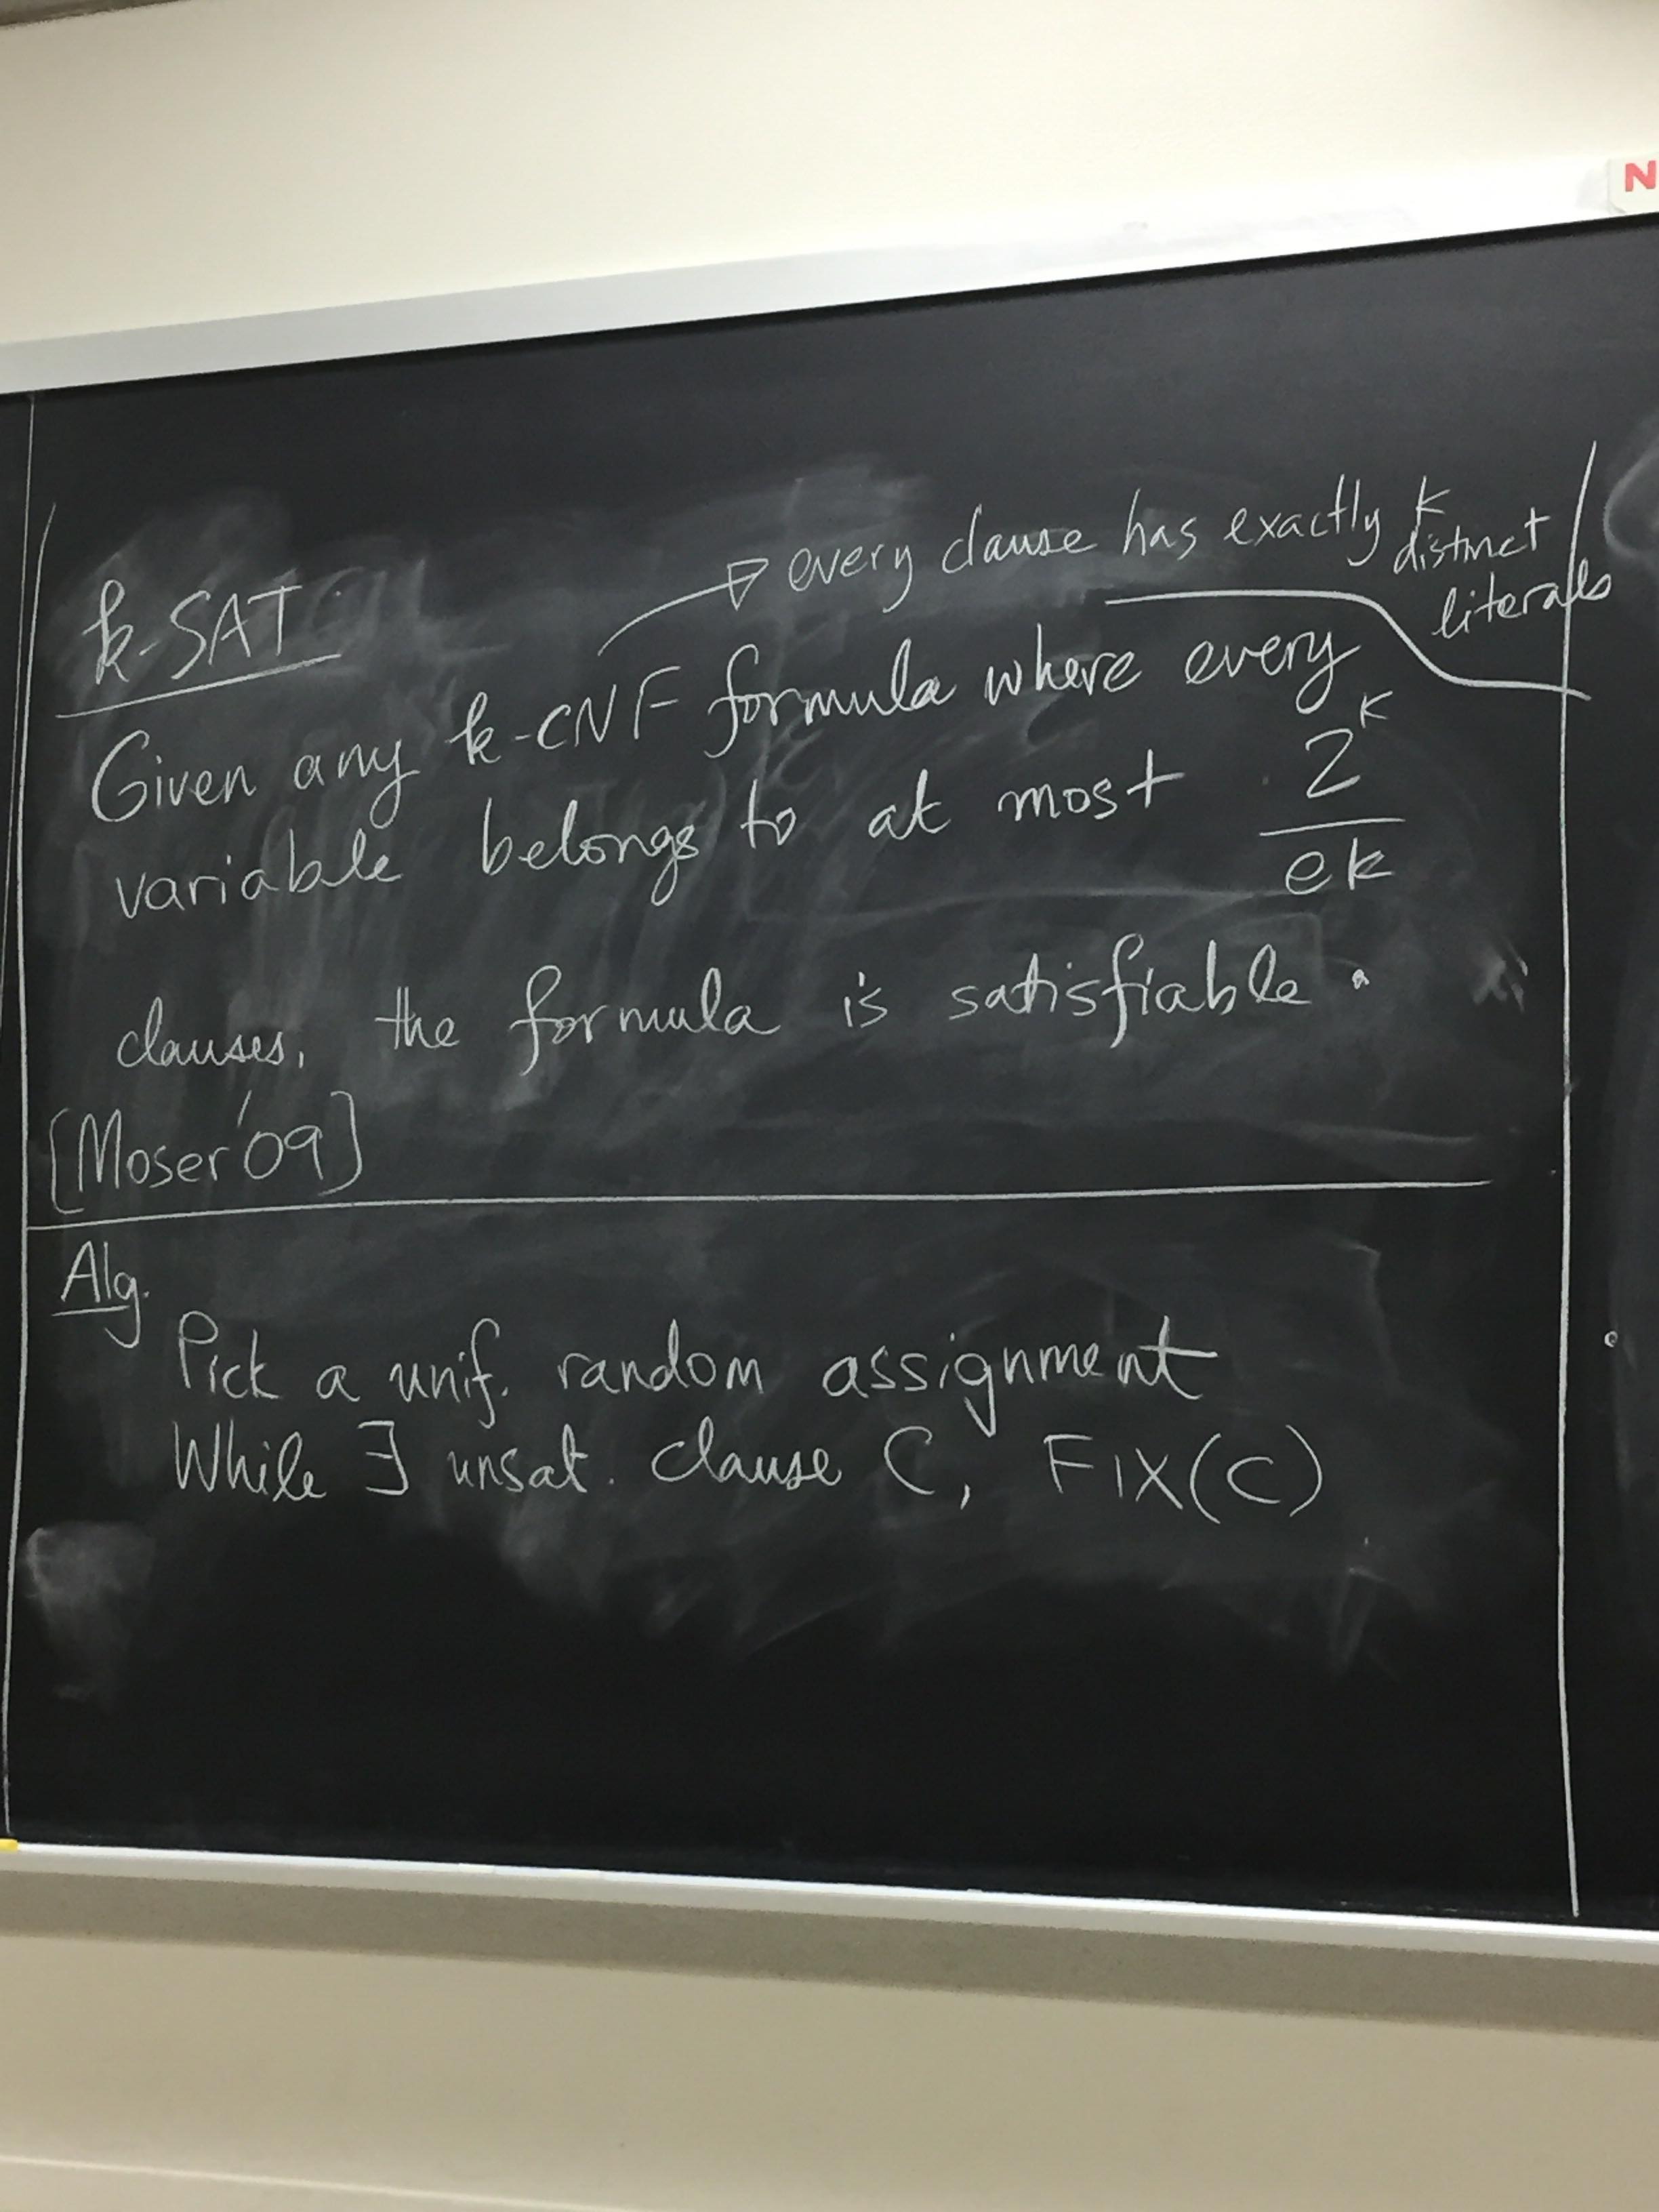 N
k-SAT
every clause has exactly k
distinct
literals
Given any k-CNF formula where every
variable belongs to at most 2^k/ek
clauses, the formula is satisfiable.
[Moser'09]
Alg.
Pick a unif. random assignment
While ∃ unsat. clause C, FIX(C)